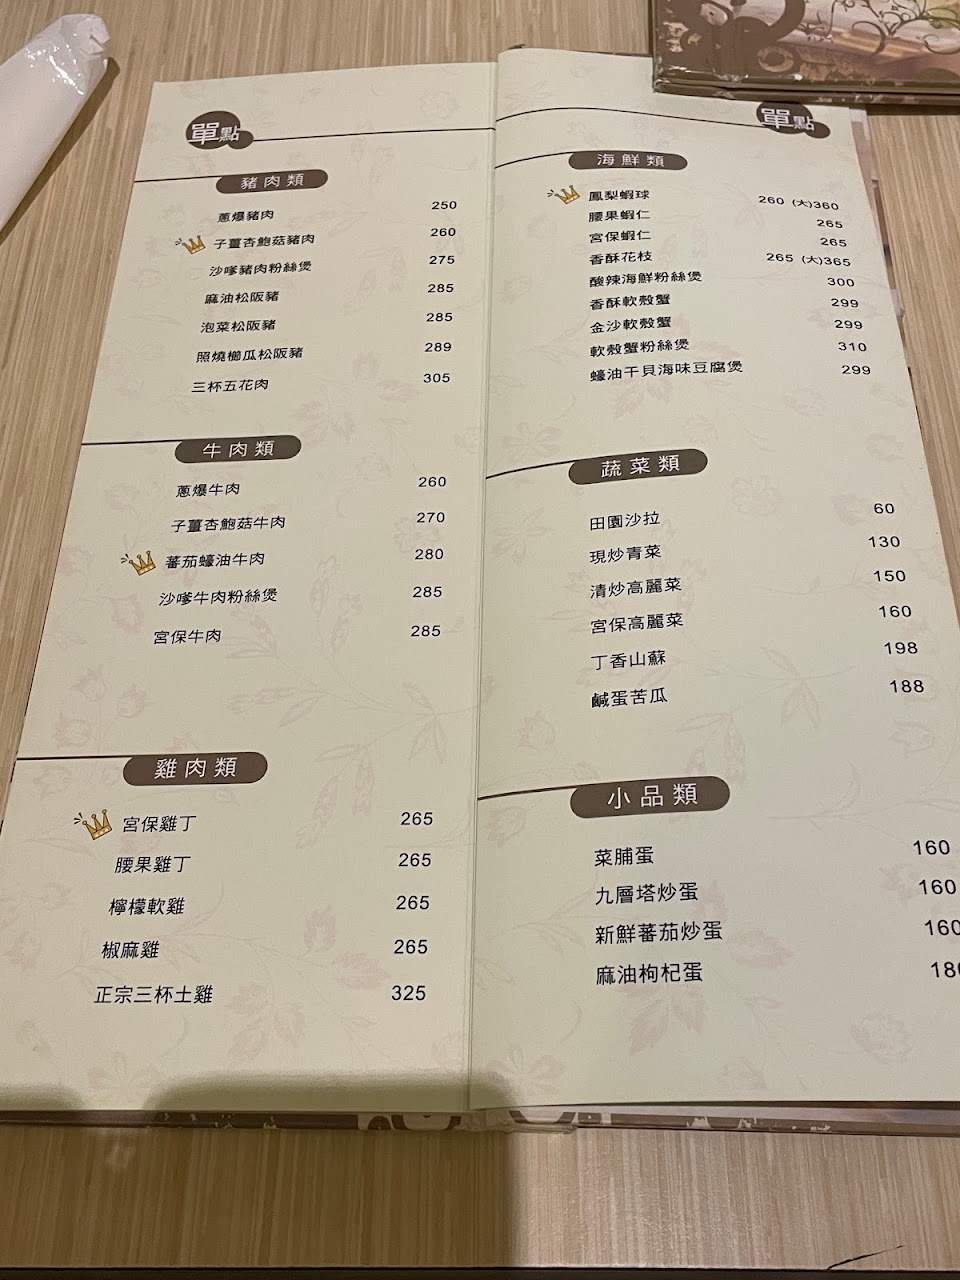 單點
豬肉類
蔥爆豬肉 250
子薑杏鮑菇豬肉 260
沙嗲豬肉粉絲煲 275
麻油松阪豬 285
泡菜松阪豬 285
照燒櫛瓜松阪豬 289
三杯五花肉 305
牛肉類
蔥爆牛肉 260
子薑杏鮑菇牛肉 270
蕃茄蠔油牛肉 280
沙嗲牛肉粉絲煲 285
宮保牛肉 285
雞肉類
宮保雞丁 265
腰果雞丁 265
檸檬軟雞 265
椒麻雞 265
正宗三杯土雞 325
單點
海鮮類
鳳梨蝦球 260 (大)360
腰果蝦仁 265
宮保蝦仁 265
香酥花枝 265 (大)365
酸辣海鮮粉絲煲 300
香酥軟殼蟹 299
金沙軟殼蟹 299
軟殼蟹粉絲煲 310
蠔油干貝海味豆腐煲 299
蔬菜類
田園沙拉 60
現炒青菜 130
清炒高麗菜 150
宮保高麗菜 160
丁香山蘇 198
鹹蛋苦瓜 188
小品類
菜脯蛋 160
九層塔炒蛋 160
新鮮蕃茄炒蛋 160
麻油枸杞蛋 180